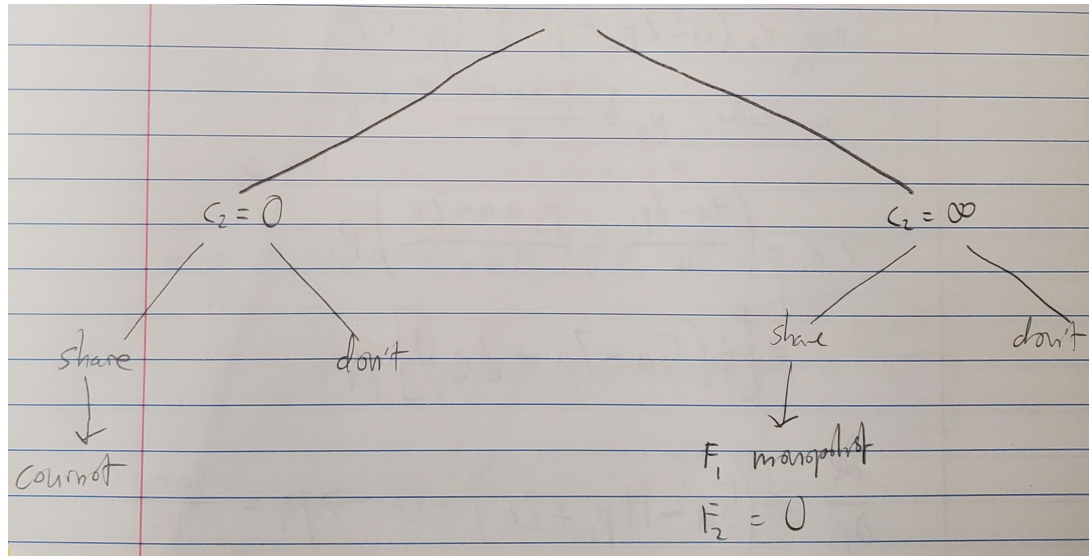 c₂ = 0
c₂ = ∞
share
don't
share
don't
cournot
F₁ monopolist
F₂ = 0